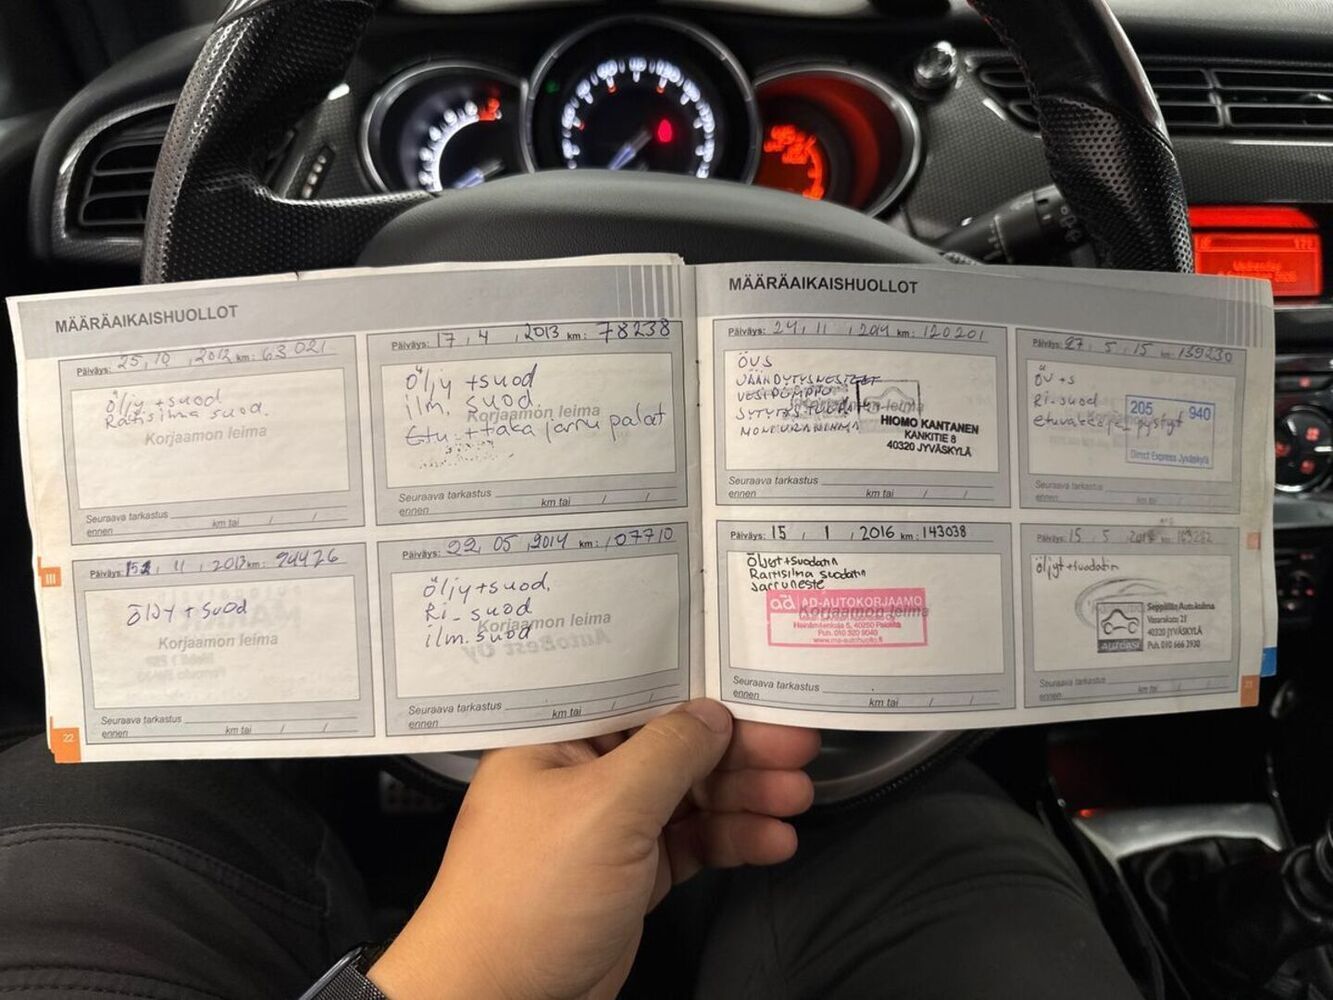 MÄÄRÄAIKAISHUOLLOT
Päiväys: 25, 10, 2012 km: 63021
Öljy + suod
Raitisilma suod.
Korjaamon leima
Seuraava tarkastus
ennen km tai / /
Päiväys: 17, 4, 2013 km: 78238
Öljy + suod
ilm. suod.
Korjaamon leima
Etu + taka jarru palat
Seuraava tarkastus
ennen km tai / /
Päiväys: 11, 2013 km: 94426
Öljy + suod
Korjaamon leima
Seuraava tarkastus
ennen km tai / /
22
Päiväys: 22, 05, 2014 km: 107710
Öljy + suod,
Ri_ suod
Korjaamon leima
ilm. suod
AutoBest Oy
Seuraava tarkastus
ennen km tai / /
III
MÄÄRÄAIKAISHUOLLOT
Päiväys: 24, 11, 2014 km: 120201
ÖVS
JÄÄHDYTYSNESTEET
VESIPUMPPU
MONIURAHIHNA
HIOMO KANTANEN
KANKITIE 8
40320 JYVÄSKYLÄ
Seuraava tarkastus
ennen km tai / /
Päiväys: 27, 5, 15 km: 139230
ÖV + S
Ri. suod
205 940
Direct Express Jyväskylä
Seuraava tarkastus
ennen km tai / /
Päiväys: 15, 1, 2016 km: 143038
Öljyt+suodatin
Raitisilma suodatin
Jarruneste
ad AD-AUTOKORJAAMO
Korjaamon leima
Puh. 010 320 9040
Seuraava tarkastus
ennen km tai / /
Päiväys: 15, 5
öljyt+suodatin
AUTOASI
Seppälän Autokolmio
Vasarakatu 23
40320 JYVÄSKYLÄ
Puh. 010 666 3930
Seuraava tarkastus
ennen km tai / /